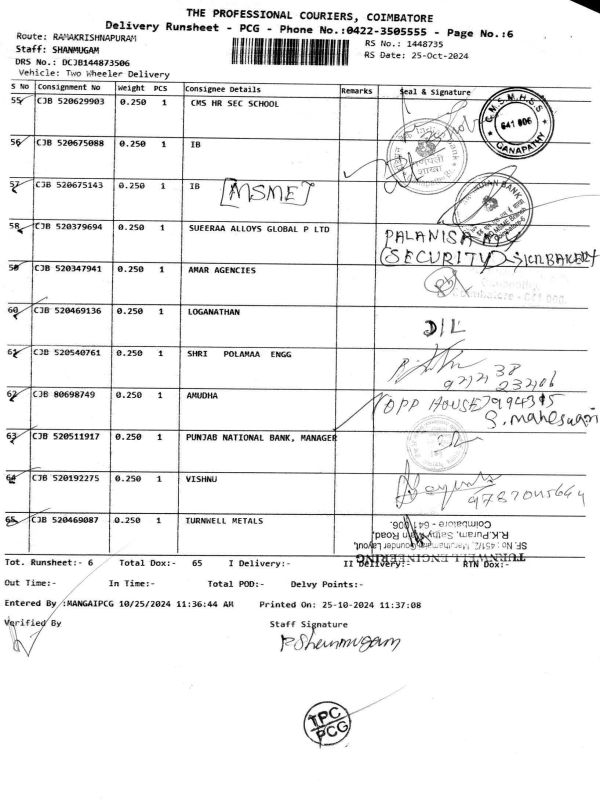 THE PROFESSIONAL COURIERS, COIMBATORE
Delivery Runsheet - PCG - Phone No.:0422-3505555 - Page No.:6
Route: RAMAKRISHNAPURAM
RS No.: 1448735
Staff: SHANMUGAM
RS Date: 25-Oct-2024
DRS No.: DCJB144873506
Vehicle: Two Wheeler Delivery
S No Consignment No Weight PCS Consignee Details Remarks Seal & Signature
55 CJB 520629903 0.250 1 CMS HR SEC SCHOOL
C.M.S.M.H.S.S 641 006 GANAPATHY
56 CJB 520675088 0.250 1 IB
57 CJB 520675143 0.250 1 IB [MSME]
INDIAN BANK
58 CJB 520379694 0.250 1 SUEERAA ALLOYS GLOBAL P LTD
(SECURITY)
59 CJB 520347941 0.250 1 AMAR AGENCIES
Coimbatore - 641 006.
60 CJB 520469136 0.250 1 LOGANATHAN D/L
61 CJB 520540761 0.250 1 SHRI POLAMAA ENGG
62 CJB 80698749 0.250 1 AMUDHA OPP HOUSE
63 CJB 520511917 0.250 1 PUNJAB NATIONAL BANK, MANAGER
64 CJB 520192275 0.250 1 VISHNU
65 CJB 520469087 0.250 1 TURNWELL METALS
TURNWELL ENGINEERING
R.K.Puram, Sathy Main Road,
Coimbatore - 641 006.
Tot. Runsheet:- 6 Total Dox:- 65 I Delivery:- II Delivery:- RTN Dox:-
Out Time:- In Time:- Total POD:- Delvy Points:-
Entered By :MANGAIPCG 10/25/2024 11:36:44 AM Printed On: 25-10-2024 11:37:08
Verified By Staff Signature
P Shanmugam
TPC
PCG